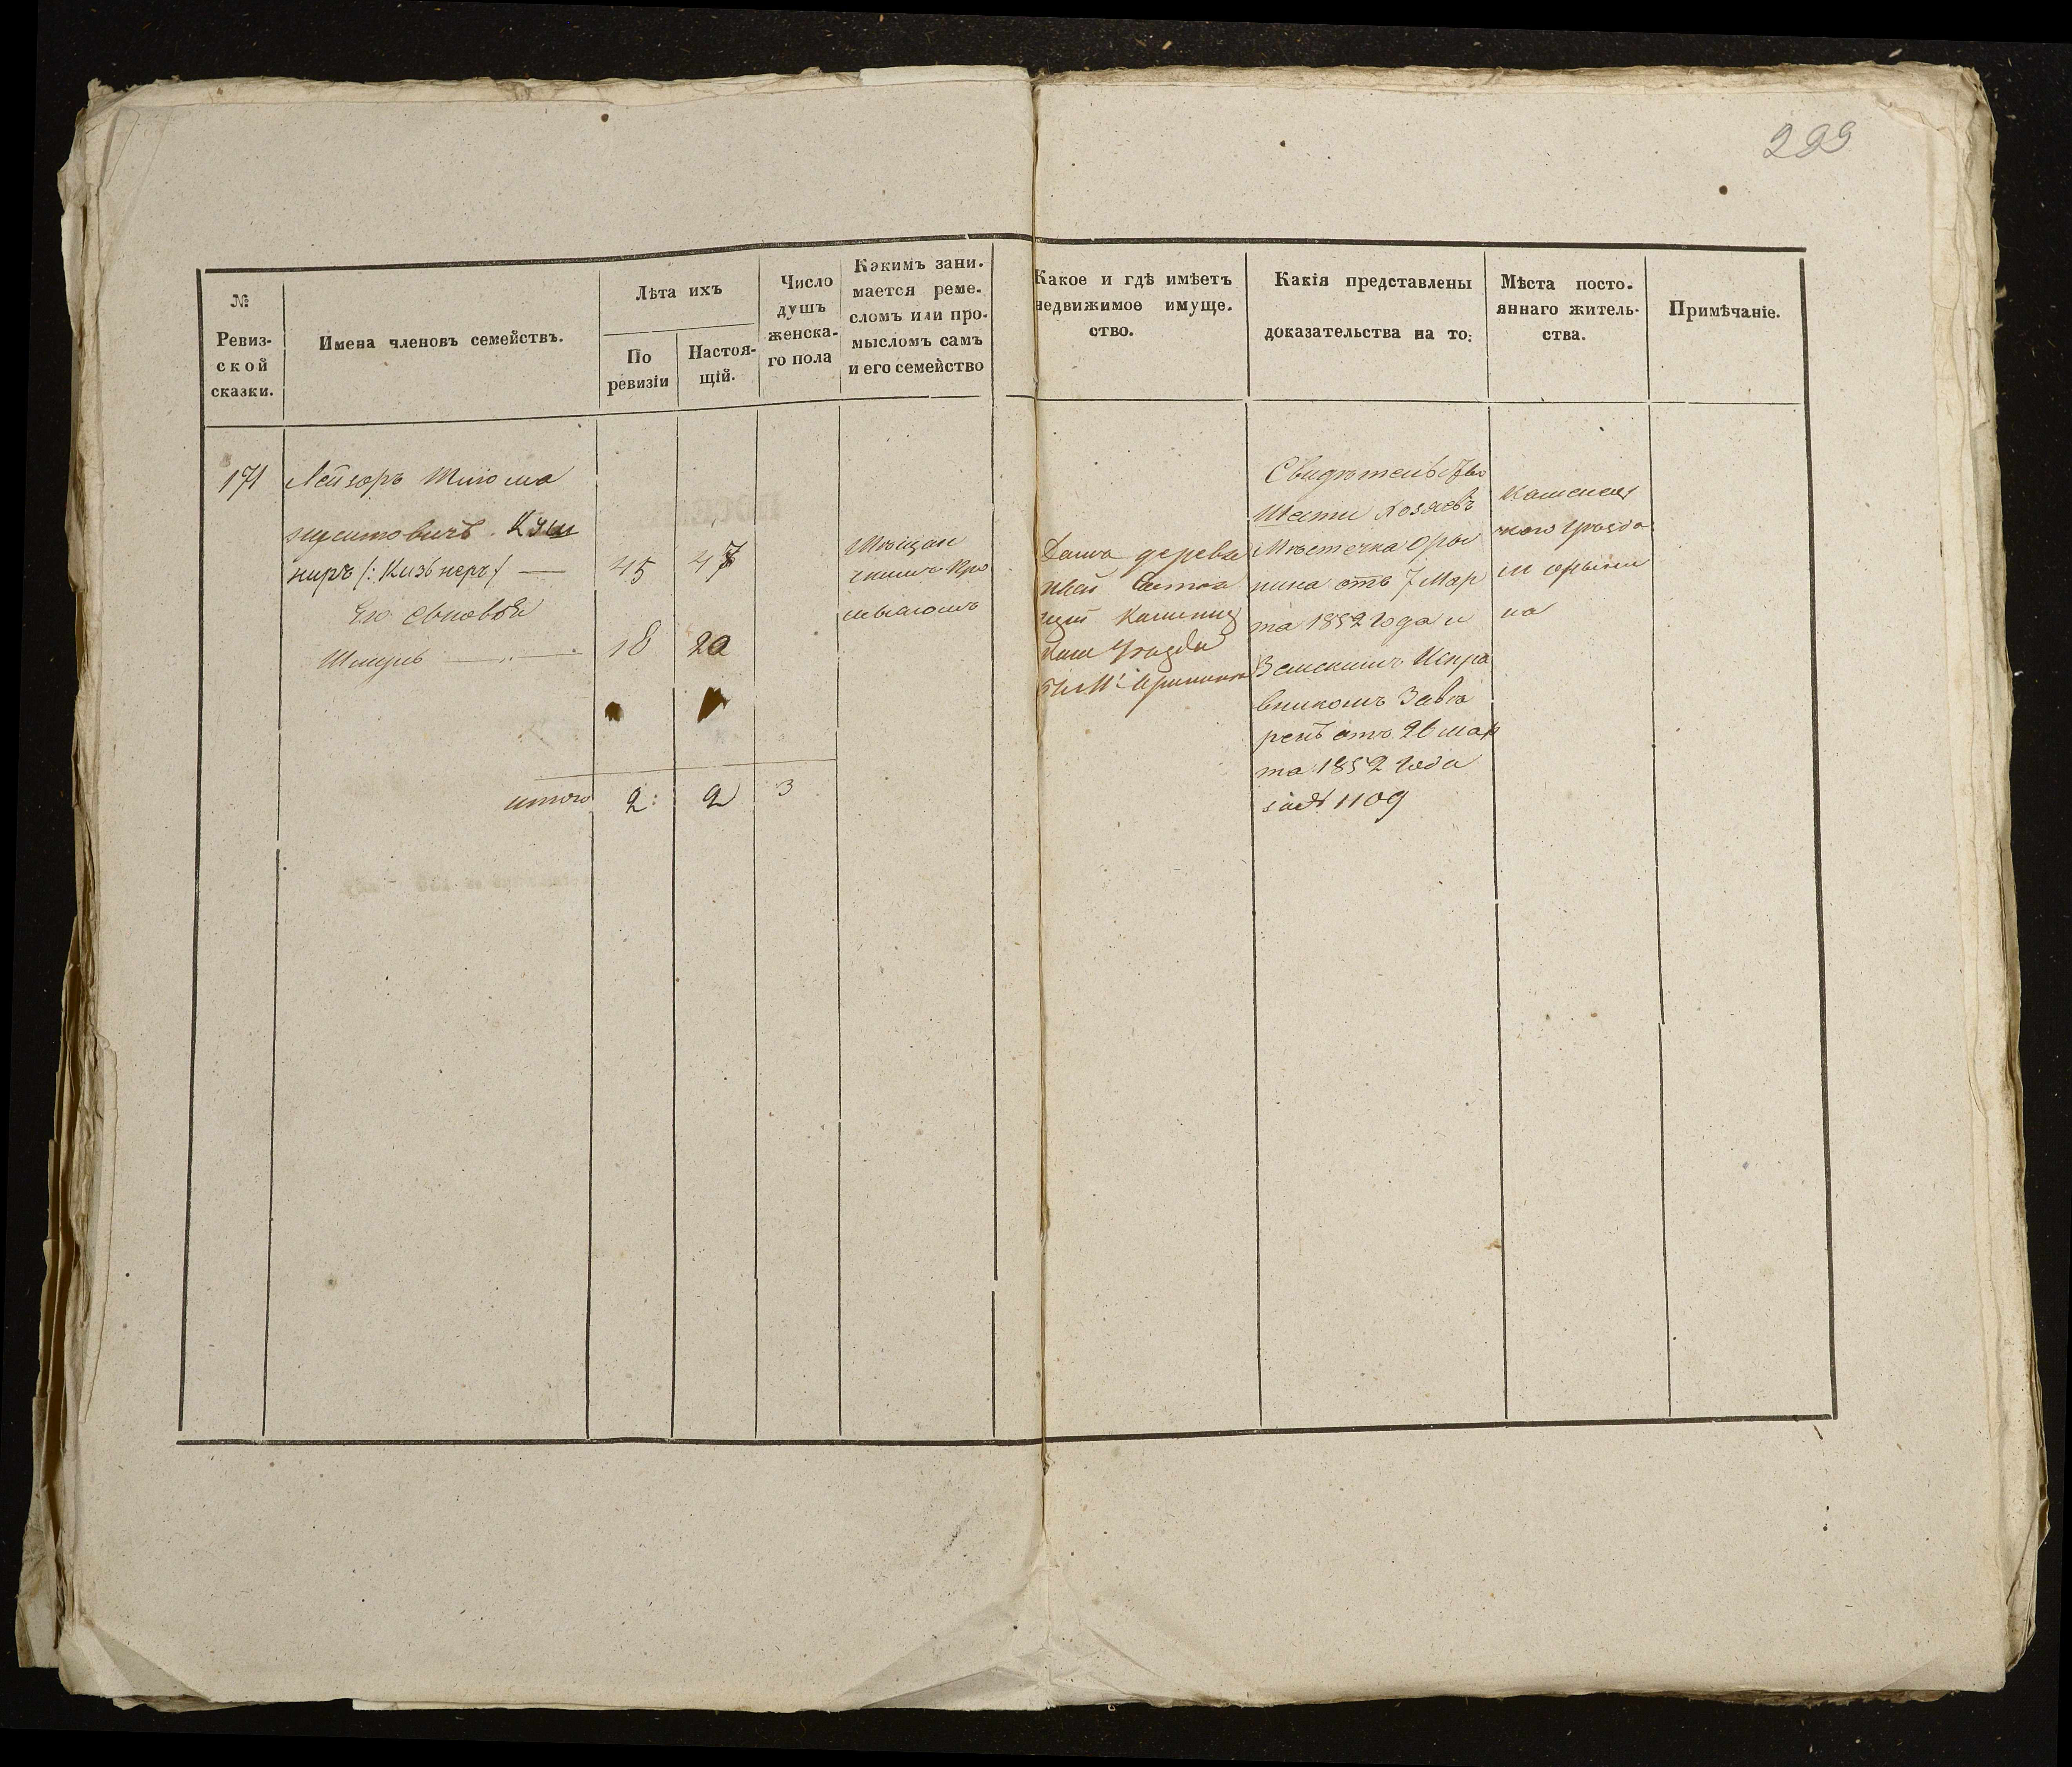 299
№
Ревиз-
ской
сказки.
Имена членовъ семействъ.
Лѣта ихъ
По
ревизіи
Настоя-
щій.
Число
душъ
женска-
го пола
Какимъ зани-
мается реме-
сломъ или про-
мысломъ самъ
и его семейство
Какое и гдѣ имѣетъ
недвижимое имуще-
ство.
Какія представлены
доказательства на то:
Мѣста посто-
яннаго житель-
ства.
Примѣчаніе.
171
Лейзоръ Шлiома
Кэш
ниръ (: Кизънеръ) —
45
47
Его сыновья
18
20
итого
2:
2
3
Мѣщан
скимъ про
мысломъ
Домъ деревя
ный состоя
щій Каменец
комъ Уѣзди
Свидѣтельство
Шести Хозяевъ
Мѣстечка Оры
нина отъ 7 Мар
та 1852 года и
Земскимъ Испра
вникомъ Завѣ
ренъ отъ 26 мар
та 1852 года
за № 1109
Каменец
каго уѣзда
м. орыни
на